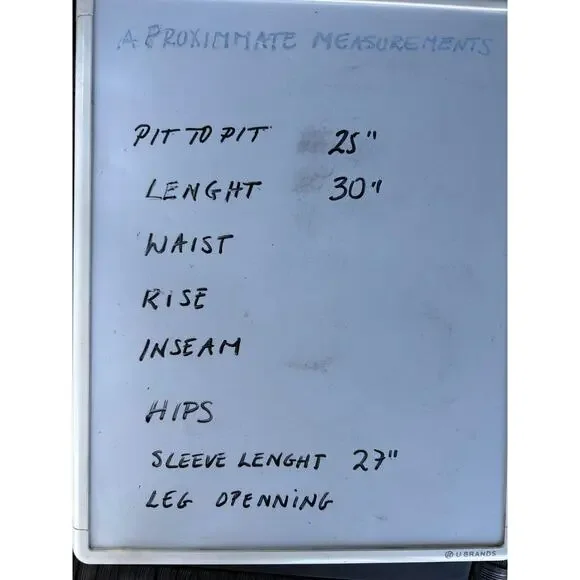 APROXIMMATE MEASUREMENTS
PIT TO PIT 25"
LENGHT 30"
WAIST
RISE
INSEAM
HIPS
SLEEVE LENGHT 27"
LEG OPENNING
U BRANDS